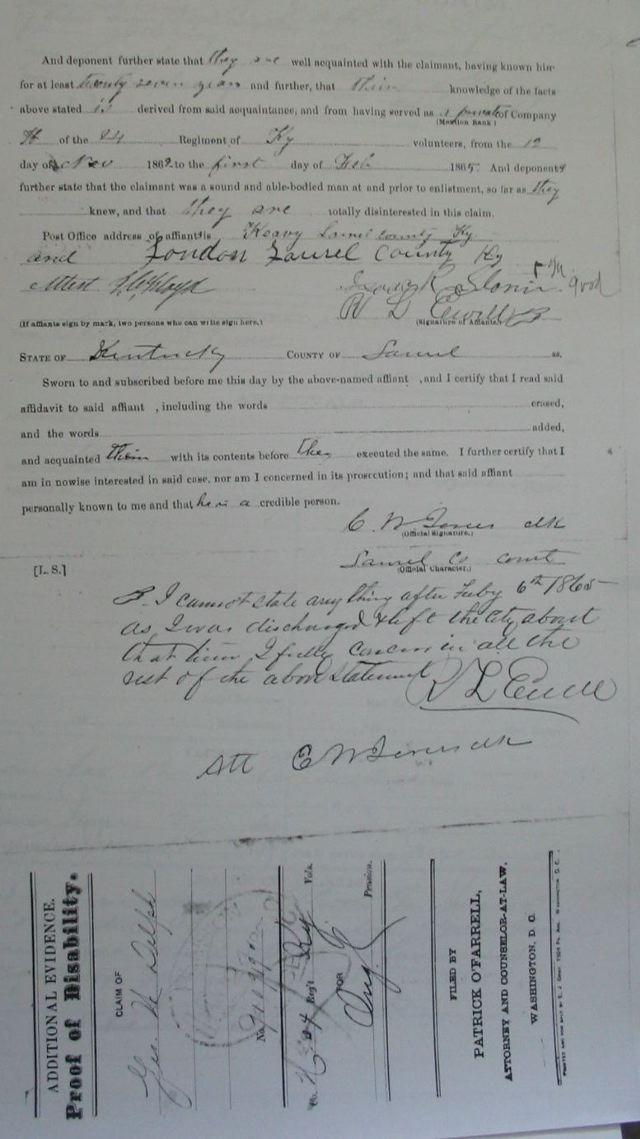 And deponent further state that they are well acquainted with the claimant, having known him
for at least twenty seven years and further, that their knowledge of the facts
above stated is derived from said acquaintance, and from having served as a private of Company
(Mention Rank)
H of the 24 Regiment of Ky volunteers, from the 12
day of Nov 1862 to the first day of Feb 1865. And deponents
further state that the claimant was a sound and able-bodied man at and prior to enlistment, so far as they
knew, and that they are totally disinterested in this claim.
Post Office address of affiants is Laurel County Ky
and London Laurel County Ky
Attest
R L Ewell
(If affiants sign by mark, two persons who can write sign here.) (Signature of Affiants.)
STATE OF Kentucky COUNTY OF Laurel ss.
Sworn to and subscribed before me this day by the above-named affiant , and I certify that I read said
affidavit to said affiant , including the words erased,
and the words added,
and acquainted them with its contents before they executed the same. I further certify that I
am in nowise interested in said case, nor am I concerned in its prosecution; and that said affiant
personally known to me and that he is a credible person.
C. W. clk
(Official Signature.)
[L. S.] Laurel Co court
(Official Character.)
I cannot state anything after Feby 6th 1865
as I was discharged & left the city about
that time I fully concur in all the
rest of the above statement R L Ewell
Att C W clk
ADDITIONAL EVIDENCE.
Proof of Disability.
CLAIM OF
Geo W Delph
No.
Co. H 24 Reg't Ky Vols.
FOR
Pension.
FILED BY
PATRICK O'FARRELL,
ATTORNEY AND COUNSELOR-AT-LAW,
WASHINGTON, D. C.